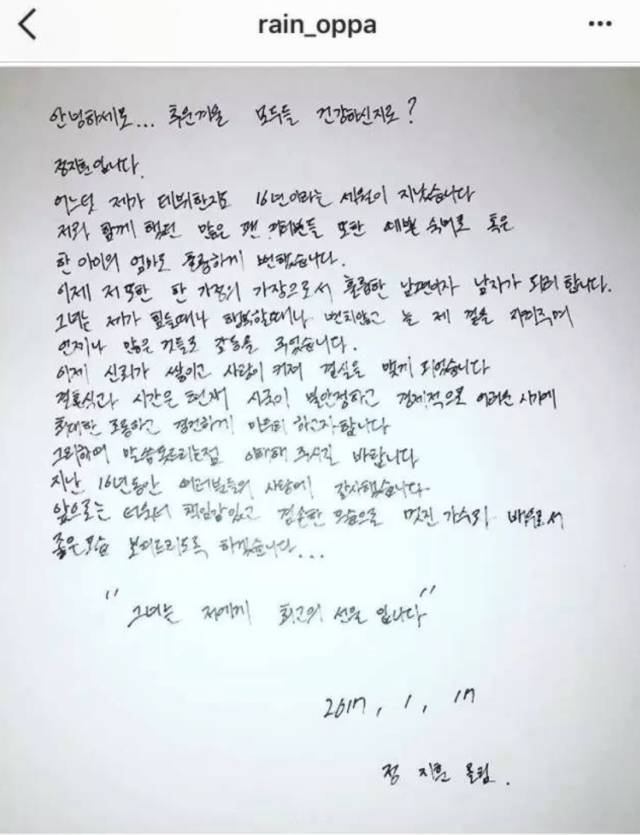 rain_oppa
안녕하세요... 추운겨울 모두들 건강하신지요?
정지훈입니다.
어느덧 제가 데뷔한지도 16년이라는 세월이 지났습니다
저와 함께 했던 많은 팬 여러분들 또한 예쁜 숙녀로 혹은
한 아이의 엄마로 훌륭하게 변했습니다.
이제 저 또한 한 가정의 가장으로서 훌륭한 남편이자 남자가 되려 합니다.
그녀는 제가 힘들때나 행복할때나 변치않고 늘 제 곁을 지켜주며
언제나 많은 것들로 감동을 주었습니다.
이제 신뢰가 쌓이고 사랑이 커져 결실을 맺게 되었습니다
결혼식과 시간은 현재 시국이 불안정하고 경제적으로 어려운 시기에
최대한 조용하고 경건하게 마무리 하고자합니다
그리하여 말씀못드리는점 이해해 주시길 바랍니다
지난 16년동안 여러분들의 사랑에 감사했습니다.
앞으로는 더욱더 책임감있고 겸손한 모습으로 멋진 가수와 배우로서
좋은모습 보여드리도록 하겠습니다...
"그녀는 저에게 최고의 선물 입니다"
2017, 1, 17
정 지훈 올림.